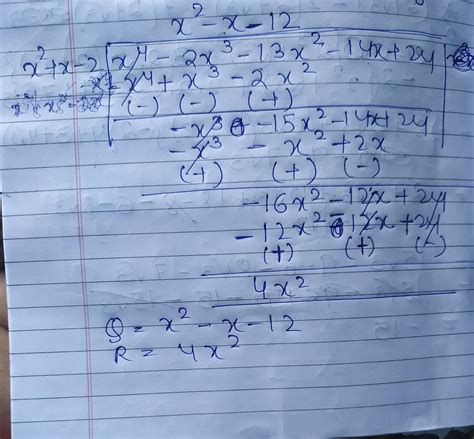 x² - x - 12
x² + x - 2 x⁴ - 2x³ - 13x² - 14x + 24
x⁴ + x³ - 2x²
(-) (-) (+)
- x³ - 15x² - 14x + 24
- x³ - x² + 2x
(+) (+) (-)
- 16x² - 12x + 24
- 12x² - 12x + 24
(+) (+) (-)
4x²
Q = x² - x - 12
R = 4x²